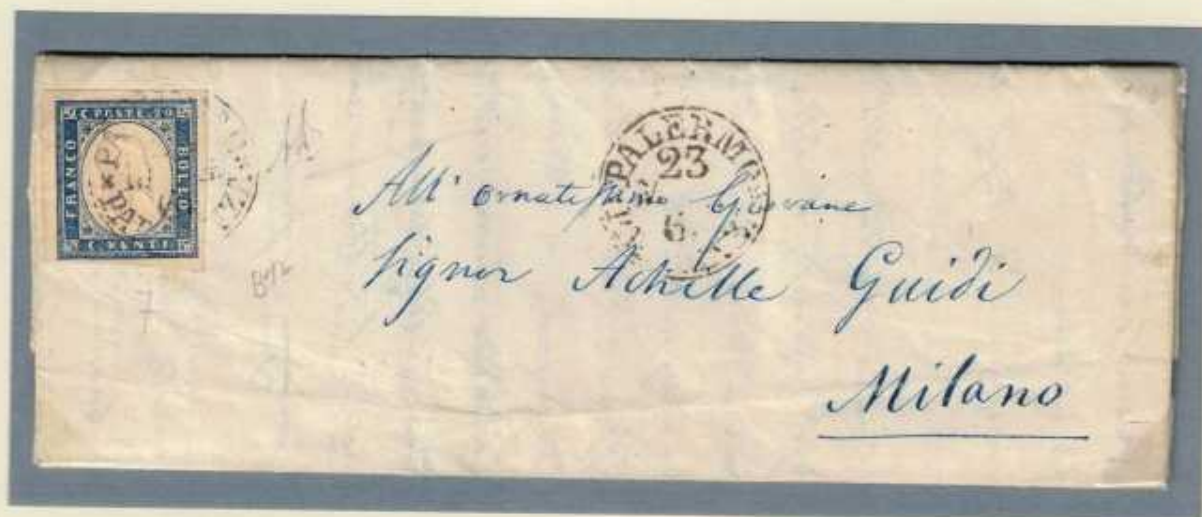 C. POSTE 20
FRANCO
BOLLO
C. VENTI
PALERMO
23
6
All' ornatissimo Giovane
Signor Achille Guidi
Milano
7